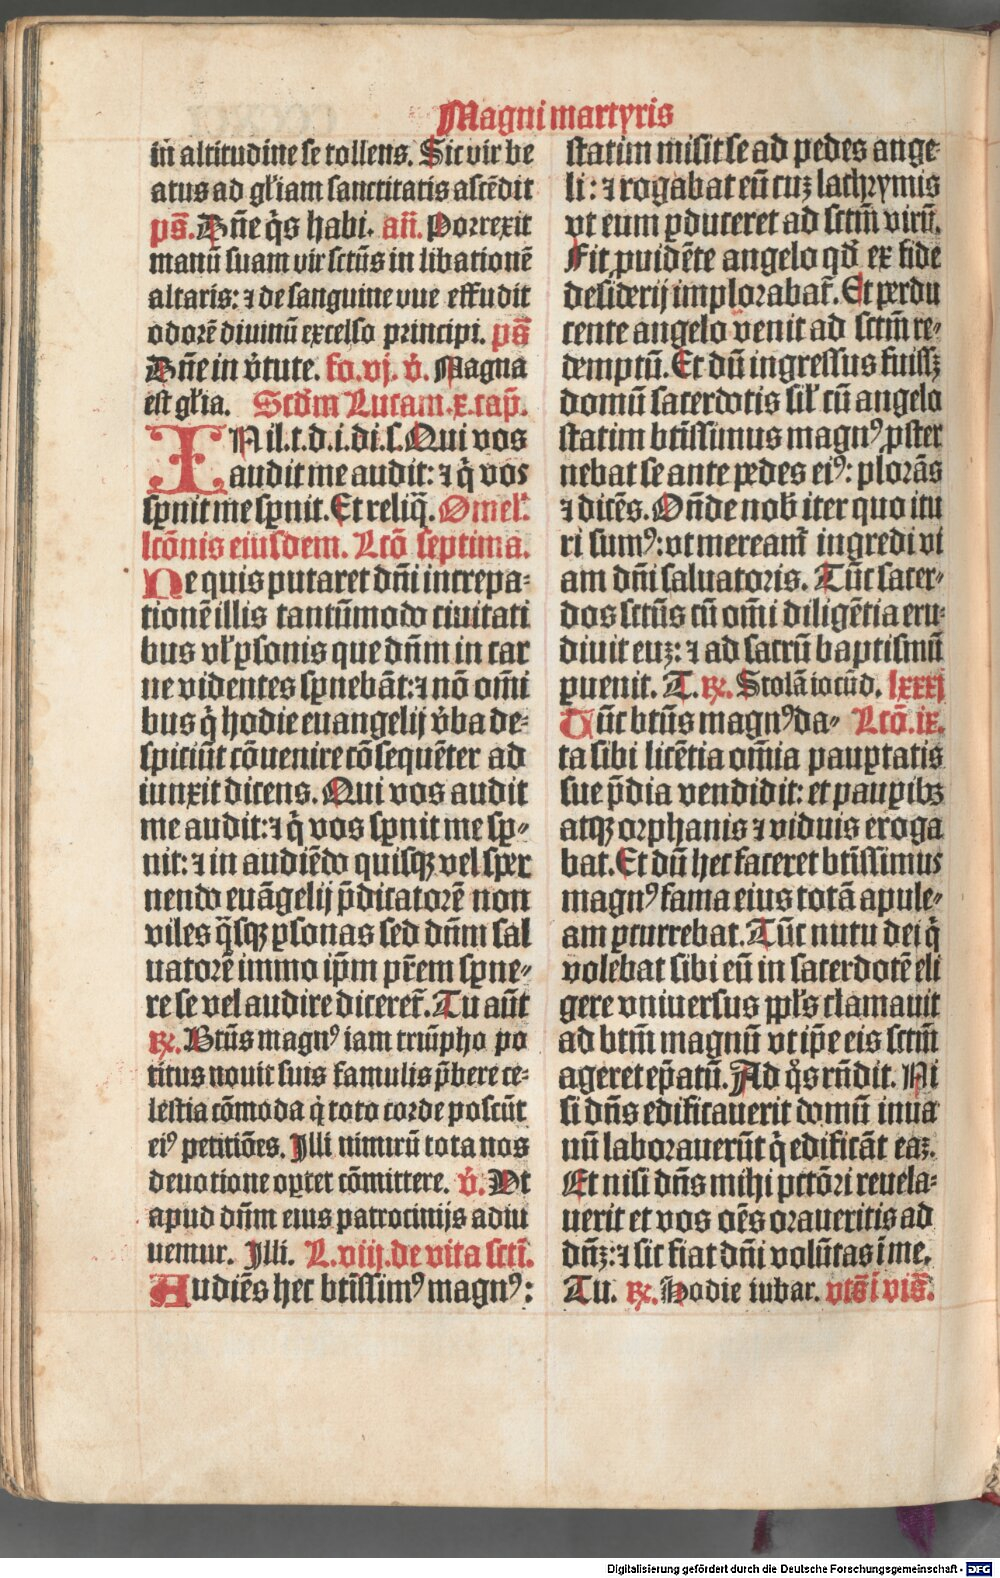 Magni martyris
in̄ altitudine se tollens. Sic vir be
atus ad gl'iam sanctitatis ascēdit
ps̄. Dn̄e q̄s habi. an̄. Porrexit
manū suam vir sctūs in libationē
altaris: ⁊ de sanguine vue effudit
odorē diuinū excelso principi. ps̄
Dn̄e in v̄tute. fo. vj. v̄. Magna
est gl'ia. Scd̄m Lucam. x. cap̄.
IN il. t. d. i. di. s. Qui vos
audit me audit: ⁊ q̄ vos
sꝑnit me sꝑnit. Et reliq̄. Omel'.
lcōnis eiusdem. Lcō septima.
Ne quis putaret dn̄i increpa-
tionē illis tantūmodo ciuitati
bus vl' ꝑsonis que dn̄m in car
ne videntes sꝑnebāt: ⁊ nō om̄i
bus q̄ hodie euangelij v̄ba de-
spiciūt cōuenire cōsequēter ad
iunxit dicens. Qui vos audit
me audit: ⁊ q̄ vos sꝑnit me sꝑ-
nit: ⁊ in audiēdo quisqꝫ vel sper
nendo euāgelij p̄dicatorē non
viles q̄sqꝫ ꝑsonas sed dn̄m sal
uatorē immo ip̄m pr̄em sꝑne-
re se vel audire diceret̄. Tu aūt
℞. Btūs magnꝰ iam triūpho po
titus nouit suis famulis p̄bere ce-
lestia cōmoda q̄ toto corde poscūt
eiꝰ petitiōes. Illi nimirū tota nos
deuotione oꝑtet cōmittere. v̄. Vt
apud dn̄m eius patrocinijs adiu
uemur. Illi. L. viij. de vita sctī.
Audiēs hec btīssimꝰ magnꝰ:
statim misit se ad pedes ange-
li: ⁊ rogabat eū cuꝫ lachrymis
vt eum ꝑduceret ad sctm̄ virū.
Fit ꝓuidēte angelo qd̄ ex fide
desiderij implorabat̄. Et perdu
cente angelo venit ad sctm̄ re-
demptū. Et dū ingressus fuisſꝫ
domū sacerdotis sil' cū angelo
statim btīssimus magnꝰ ꝓster
nebat se ante pedes eiꝰ: plorās
⁊ dicēs. Ōnde nob' iter quo itu
ri sumꝰ: vt mereamr̄ ingredi vi
am dn̄i saluatoris. Tūc sacer-
dos sctūs cū om̄i diligētia eru-
diuit euꝫ: ⁊ ad sacrū baptismū
ꝑuenit. T. ℞. Stolā iocūd. lxxxj
Tūc btūs magnꝰ da- Lcō. ix.
ta sibi licētia om̄ia pauꝑtatis
sue p̄dia vendidit: et pauꝑibꝫ
atqꝫ orphanis ⁊ viduis eroga
bat. Et dū hec faceret btīssimus
magnꝰ fama eius totā apule-
am ꝑcurrebat. Tūc nutu dei q̄
volebat sibi eū in sacerdotē eli
gere vniuersus ppl's clamauit
ad btm̄ magnū vt ip̄e eis sctm̄
ageret ep̄atū. Ad q̊s rn̄dit. Ni
si dn̄s edificauerit domū inua
nū laborauerūt q̄ edificāt eaꝫ.
Et nisi dn̄s mihi pctōri reuela-
uerit et vos oēs oraueritis ad
dn̄ꝫ: ⁊ sic fiat dn̄i volūtas ī me.
Tu. ℞. Hodie iubar. vts̄ ī vis̄.
Digitalisierung gefördert durch die Deutsche Forschungsgemeinschaft - DFG